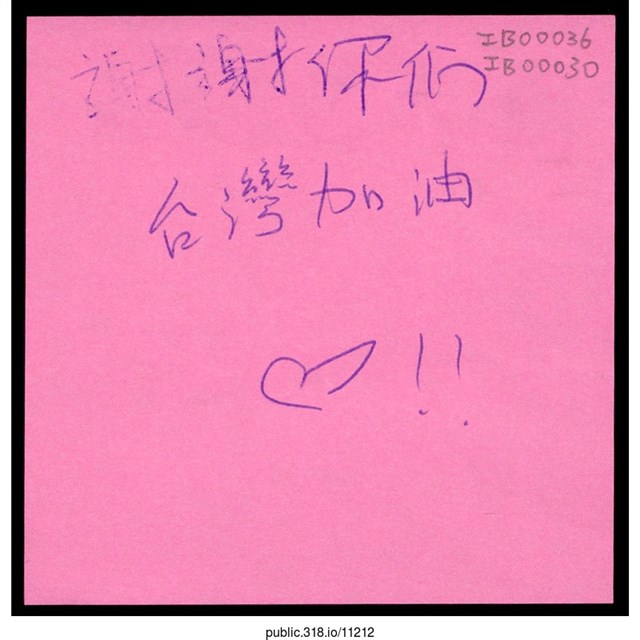 謝謝你們
IB00036
IB00030
台灣加油
!!
public.318.io/11212